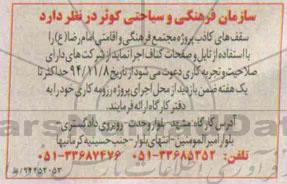 سازمان فرهنگی و سیاحتی کوثر در نظر دارد
سقف های کاذب پروژه مجتمع فرهنگی و اقامتی امام رضا (ع) را
با استفاده از تایل و صفحات کناف اجرا نماید از شرکت های دارای
صلاحیت و تجربه کاری دعوت می شود از تاریخ ۹۴/۱۱/۸ حداکثر تا
یک هفته ضمن بازدید از محل اجرای پروژه رزومه کاری خود را به
دفتر کارگاه ارائه فرمایند.
آدرس کارگاه: مشهد - بلوار وحدت - روبروی دادگستری
بلوار امیرالمومنین - انتهای بلوار - جنب حسینیه کرمانیها
تلفن: ۳۳۶۸۵۳۵۲-۰۵۱ ۳۳۶۸۷۴۷۶-۰۵۱
۹۴۴۵۲۰۵۳/ف